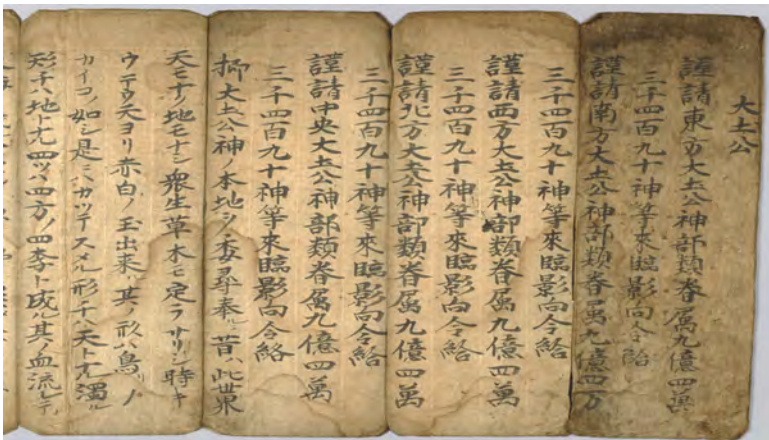 大土公
謹請東方大土公神部類眷属九億四萬
三千四百九十神等來臨影向令給
謹請南方大土公神部類眷属九億四万
三千四百九十神等來臨影向令給
謹請西方大土公神部類眷属九億四萬
三千四百九十神等來臨影向令給
謹請北方大土公神部類眷属九億四萬
三千四百九十神等來臨影向令給
謹請中央大土公神部類眷属九億四萬
三千四百九十神等來臨影向令給
抑大土公神ノ本地ヲ委尋奉ル昔ハ此世界
天モナク地モナシ衆生草木モ定ラサリシ時キ
天ヨリ赤白ノ玉出来ル其ノ形ハ鳥ノ
カイコノ如シ是ニハカツテスメル形チハ天ト尤濁ル
形チハ地ト尤四ツハ四方ノ四季ト成ル其ノ血流レテ